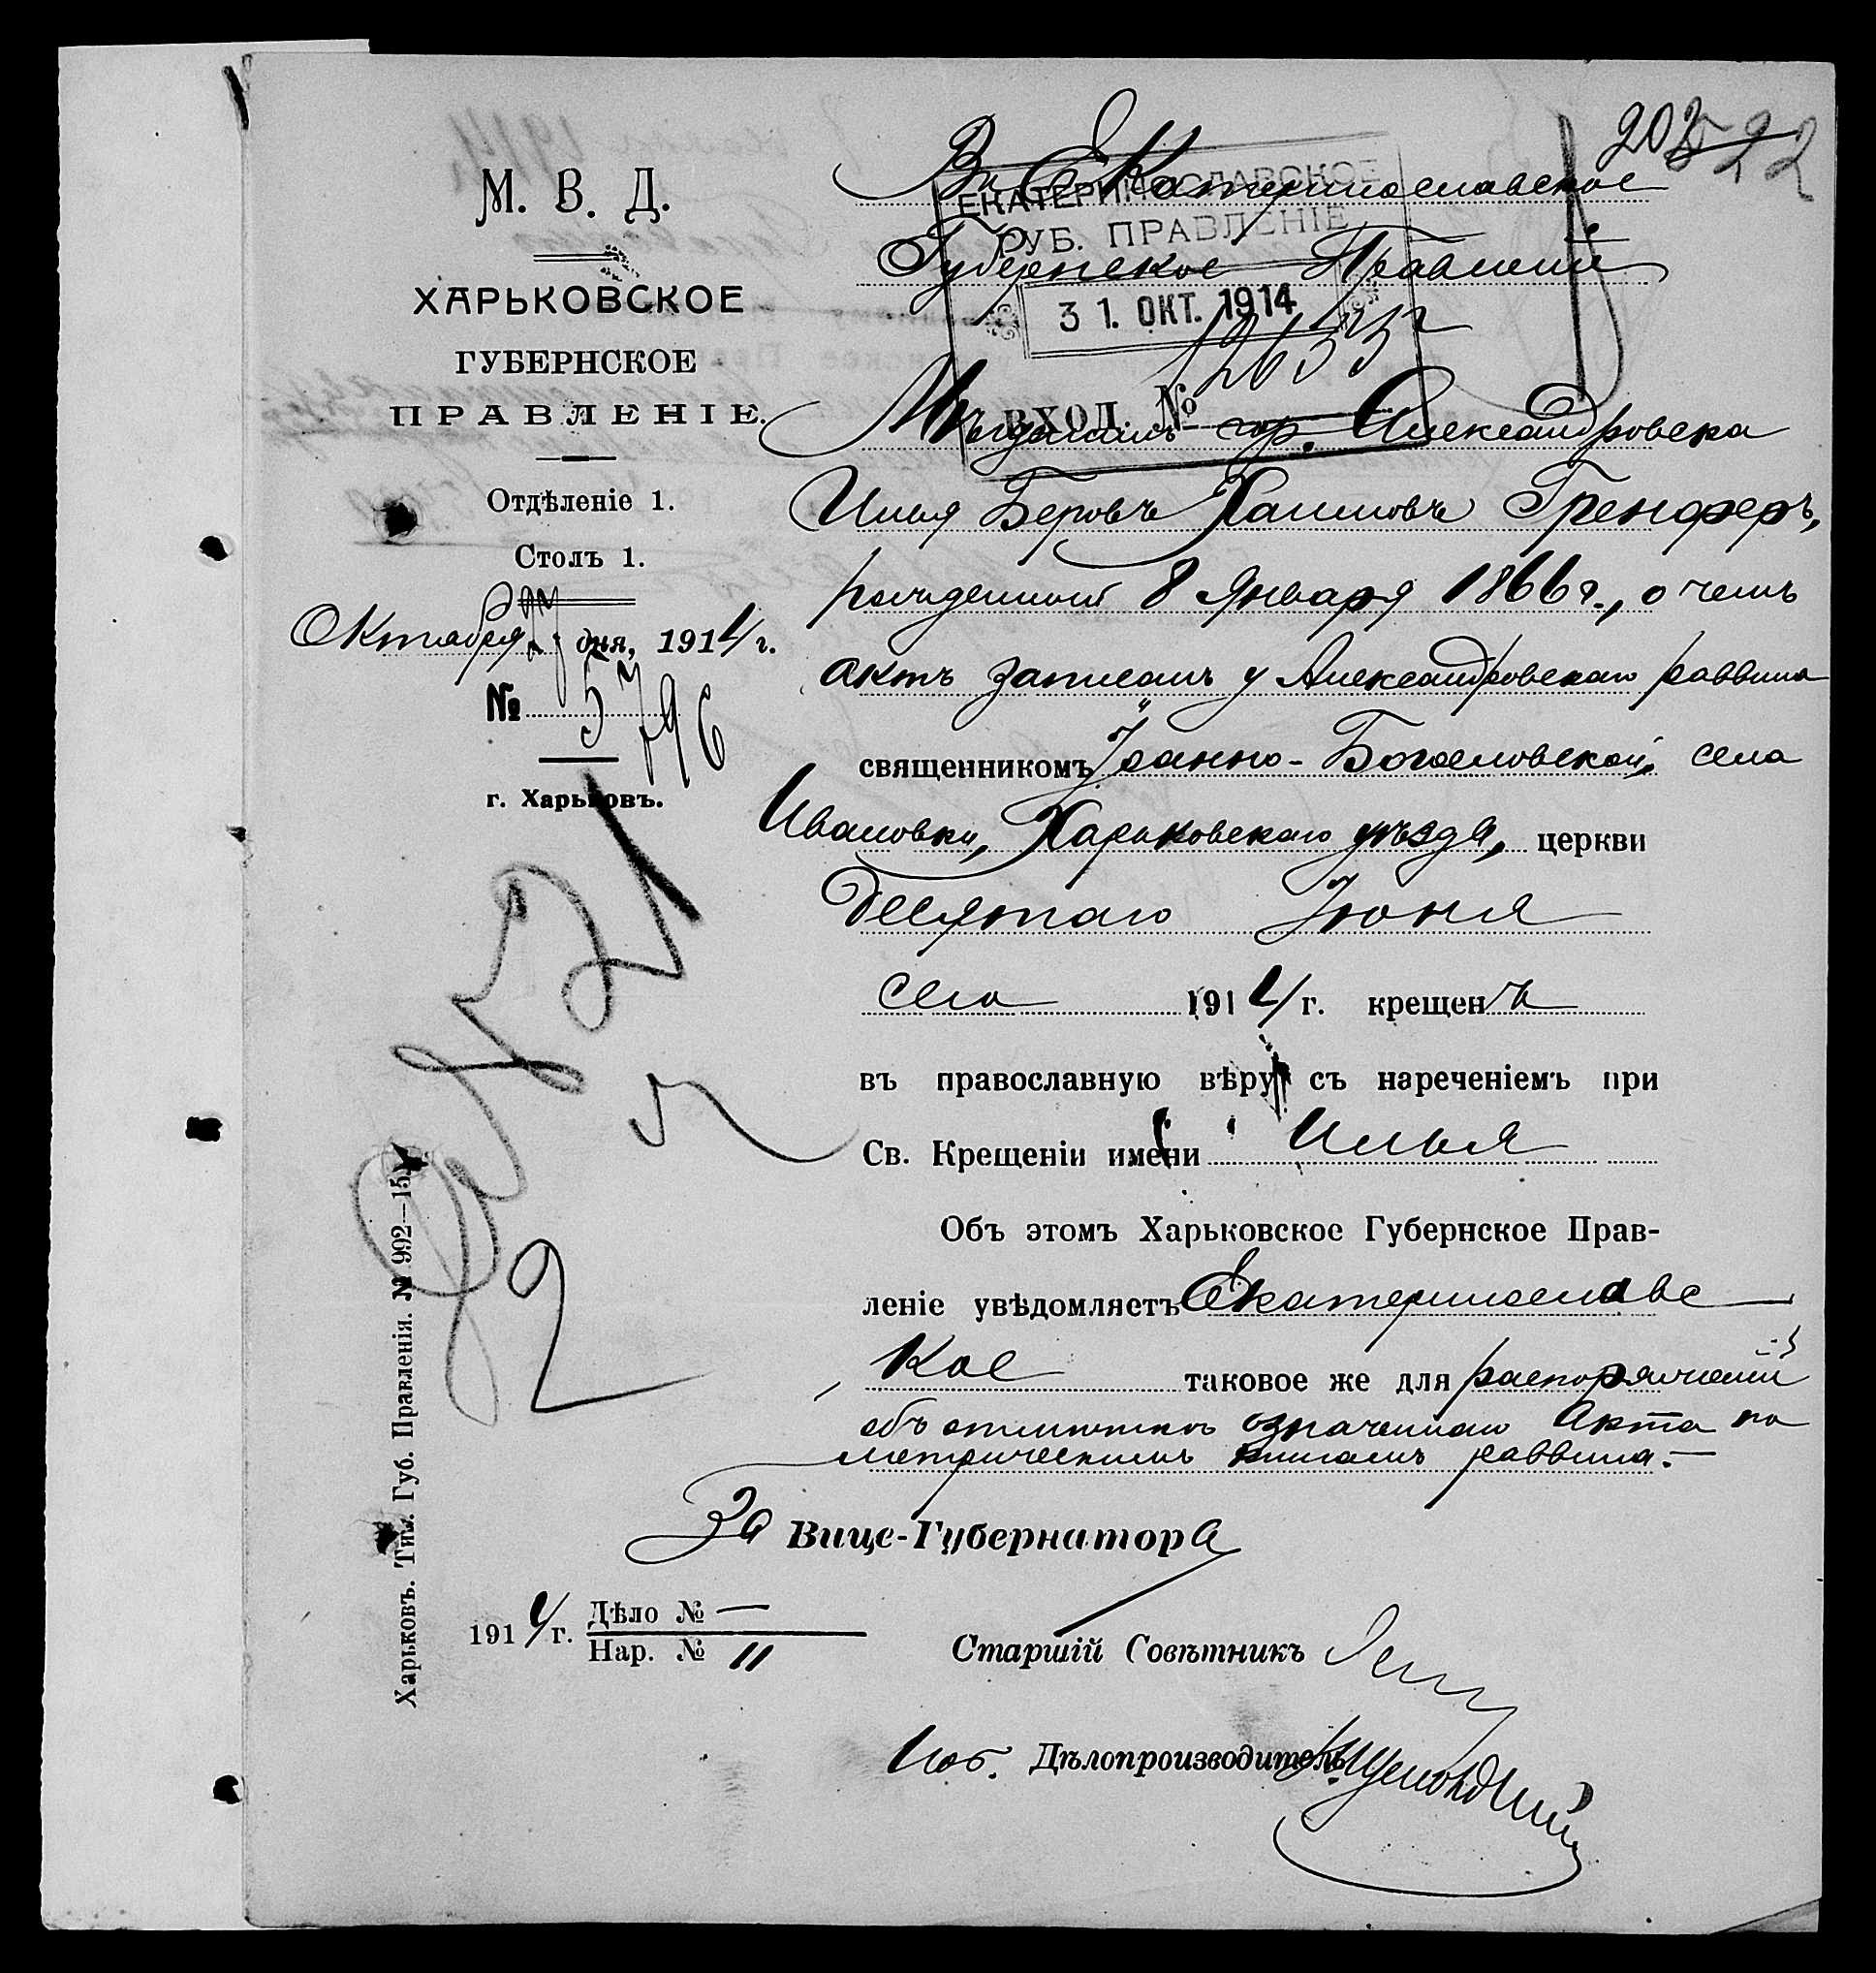 М. В. Д.
ХАРЬКОВСКОЕ
ГУБЕРНСКОЕ
ПРАВЛЕНІЕ.
Отдѣленіе 1.
Столъ 1.
Октября 29 дня, 1914 г.
№ 5796
г. Харьковъ.
Харьковъ. Тип. Губ. Правленія. № 992—15
202
22
Въ Екатеринославское
Губернское Правленіе
ЕКАТЕРИНОСЛАВСКОЕ
ГУБ. ПРАВЛЕНІЕ
31. ОКТ. 1914
ВХОД. №
Мѣщанинъ гор. Александровска
Илья Беровъ Хаимовъ Гренферъ,
рожденный 8 Января 1866 г., о чемъ
актъ записанъ у Александровскаго раввина
священникомъ Іоанно-Богословской, села
Ивановки, Харьковскаго уѣзда, церкви
десятаго Іюня
сего 1914 г. крещенъ
въ православную вѣру съ нареченіемъ при
Св. Крещеніи имени Илья
Объ этомъ Харьковское Губернское Прав-
леніе увѣдомляетъ Екатеринославс
кое таковое же для распоряженій
объ отмѣткѣ означеннаго акта по
метрическимъ книгамъ раввина.—
За Вице-Губернатора
1914 г. Дѣло № —
Нар. № 11
Старшій Совѣтникъ
Дѣлопроизводитель